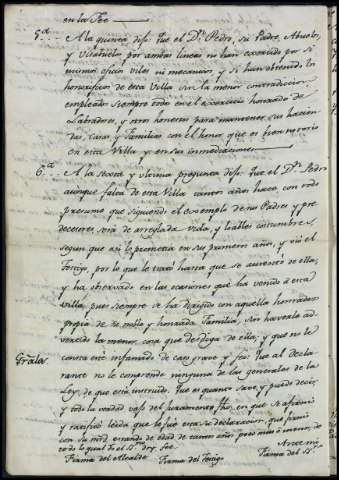 en la Fee
5ª A la quinta dijo: Que el Dn. Pedro, su Padre, Abuelos,
y Visabuelos por ambas lineas no han exercido por si
mismos oficios viles ni mecanicos y si han obtenido los
honorificos de esta Villa sin la menor contradiccion
empleados siempre todo en el exercicio honrado de
Labradores, y otros honestos para mantener sus hacien-
das, Casas, y Familias con el honor que es bien notorio
en esta Villa y en sus inmediaciones
6ª A la sexta y ultima pregunta dijo: Que el Dn. Pedro
aunque falta de esta Villa tantos años hace, con todo
presume que siguiendo el exemplo de sus Padres y pre-
decesores, será de arreglada vida, y loables costumbres,
segun que asi lo prometia en sus primeros años, y vió el
Testigo, por lo que le trató hasta que se ausentó de ella;
y ha observado en las ocasiones que ha venido á esta
Villa, pues siempre se ha dirigido con aquella honradez
propia de su noble y honrada Familia, sin haversele ad-
vertido la menor cosa que desdiga de ella; y que no le
consta esté infamado de caso grave y feo: Que al Decla-
Grales. rante no le comprende ninguna de las generales de la
Ley, de que está instruido. Que es quanto save, y puede decir,
y todo la verdad vajo del juramento fho, en que se afirmó
y ratificó leida que le fue esta su declaracion, que firmó
con su md. siendo de edad de años poco mas ó menos, de
todo lo qual Yo el Sno. doy fee. Ante mi
Firma del Alcalde Firma del Testigo Firma del Sno.